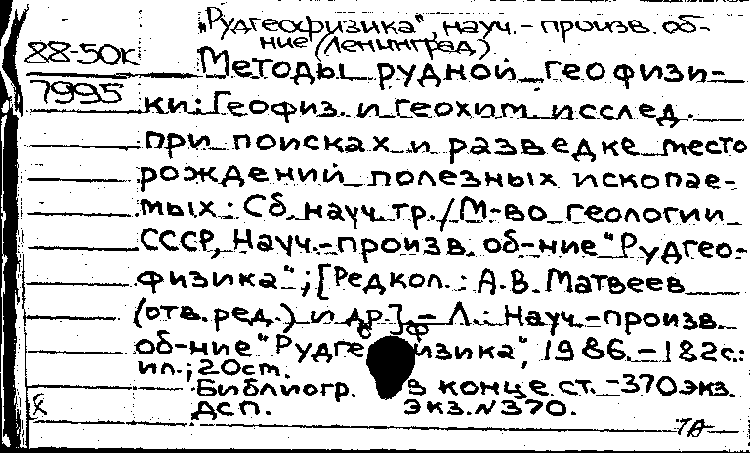 "Рудгеофизика", науч.- произв. об-
ние (Ленинград)
88-50к
Методы рудной геофизи-
7995
ки: Геофиз. и геохим. исслед.
при поисках и разведке место
рождений полезных ископае-
мых: Сб. науч. тр./М-во геологии
СССР, Науч.-произв. об-ние "Рудгео-
физика"; [Редкол.: А.В. Матвеев
(отв. ред.) и др.]. - Л.: Науч.-произв.
об-ние "Рудгеофизика", 1986. - 182 с.:
ил.; 20 см.
Библиогр. в конце ст. - 370 экз.
ДСП. Экз. N 370.